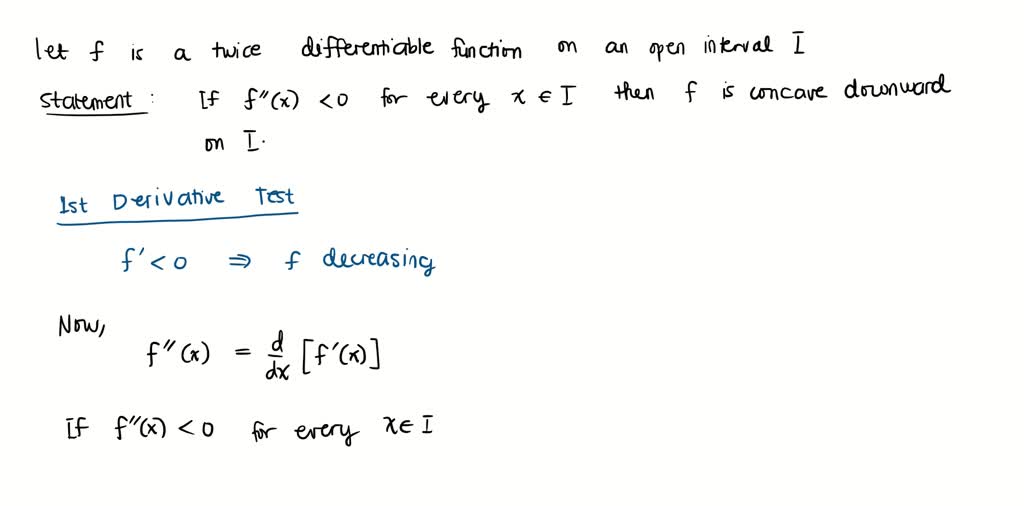 let f is a twice differentiable function on an open interval I
Statement : If f''(x) < 0 for every x ∈ I then f is concave downward
on I.
1st Derivative Test
f' < 0 ⇒ f decreasing
Now,
f''(x) = d/dx [f'(x)]
If f''(x) < 0 for every x ∈ I